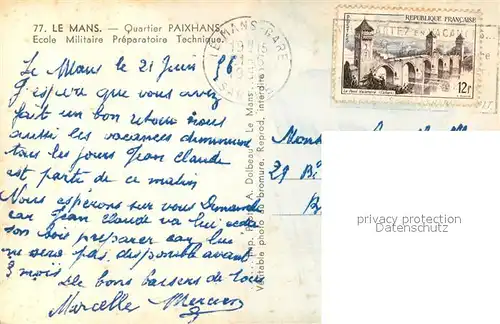 77. LE MANS. — Quartier PAIXHANS.
Ecole Militaire Préparatoire Technique.
LE MANS GARE
19H15
SARTHE
REPUBLIQUE FRANÇAISE
POSTES
12F
Le Mans le 21 Juin 56
J'espère que vous avez
fait un bon retour nous
aussi les vacances diminuent
tous les jours Jean Claude
est parti de ce matin
Nous espérons sur vous Dimanche
car Jean Claude va lui
son bois préparer car lui
ne sera pas disponible avant
3 mois.
De bons baisers de tous
Marcelle Mercier
Imp. Photo A. Dolbeau, Le Mans
Véritable photo au bromure. Reprod. interdite
29
privacy protection
Datenschutz